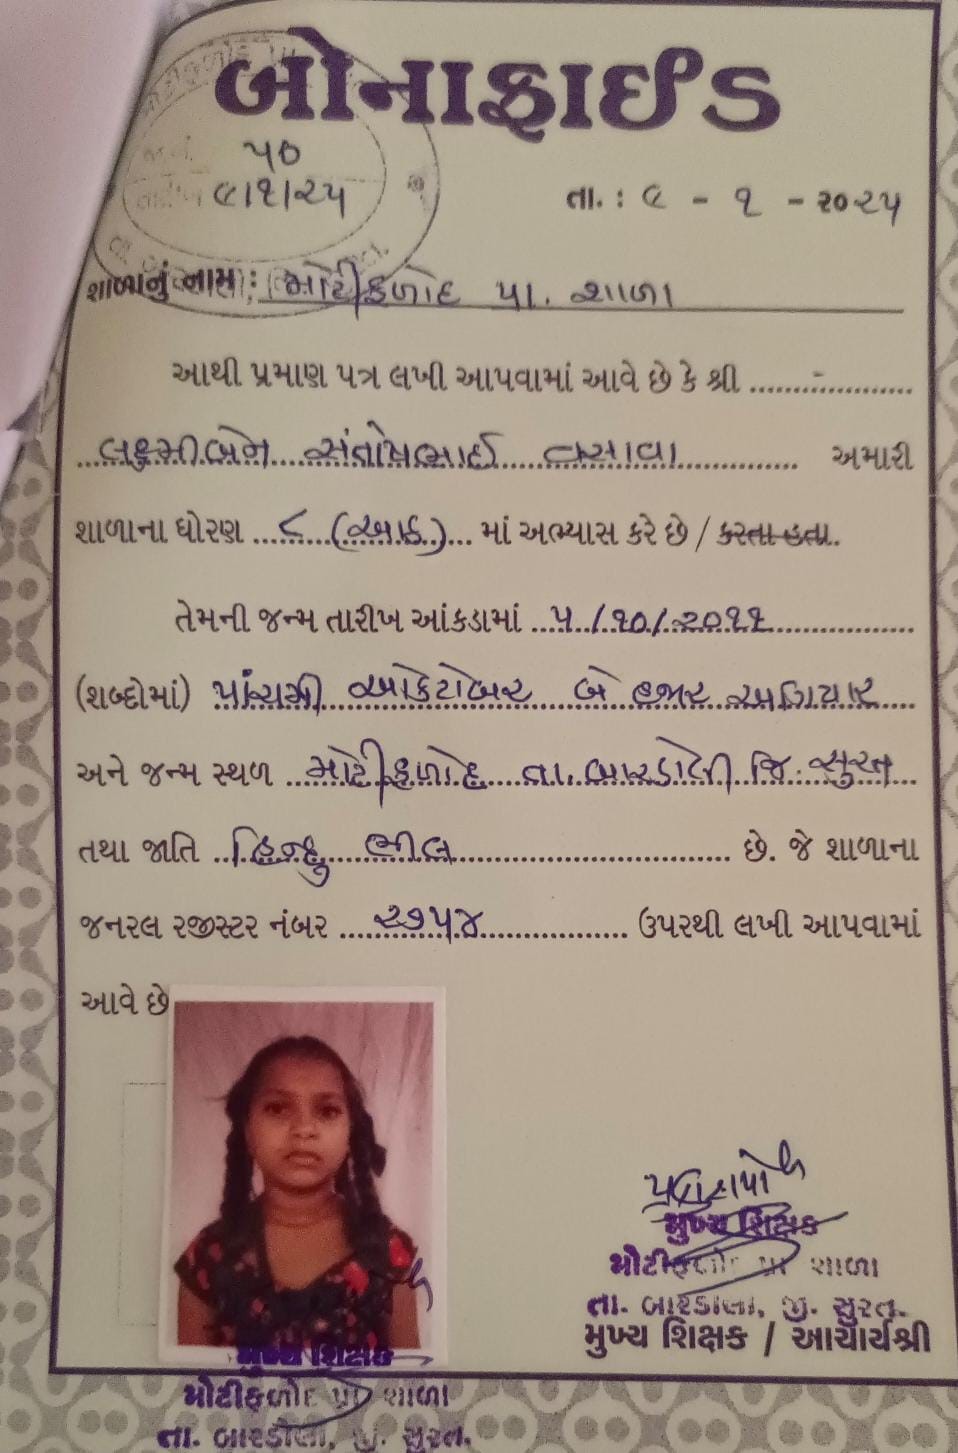 બોનાફાઈડ
૫૦
૯/૧/૨૫
તા. : ૯ - ૧ - ૨૦૨૫
શાળાનું નામ : મોટીફળોદ પ્રા. શાળા
આથી પ્રમાણ પત્ર લખી આપવામાં આવે છે કે શ્રી
લક્ષ્મીબેન સંતોષભાઈ વસાવા અમારી
શાળાના ધોરણ ૮ (આઠ) માં અભ્યાસ કરે છે / કરતા હતા.
તેમની જન્મ તારીખ આંકડામાં ૫/૧૦/૨૦૧૧
(શબ્દોમાં) પાંચમી ઓકટોબર બે હજાર અગિયાર
અને જન્મ સ્થળ મોટીફળોદ તા. બારડોલી જિ. સુરત
તથા જાતિ હિન્દુ ભીલ છે. જે શાળાના
જનરલ રજીસ્ટર નંબર ૨૭૫૪ ઉપરથી લખી આપવામાં
આવે છે
મુખ્ય શિક્ષક
મોટીફળોદ પ્રા શાળા
તા. બારડોલી, જી. સુરત.
મુખ્ય શિક્ષક / આચાર્યશ્રી
મુખ્ય શિક્ષક
મોટીફળોદ પ્રા શાળા
તા. બારડોલી, જી. સુરત.